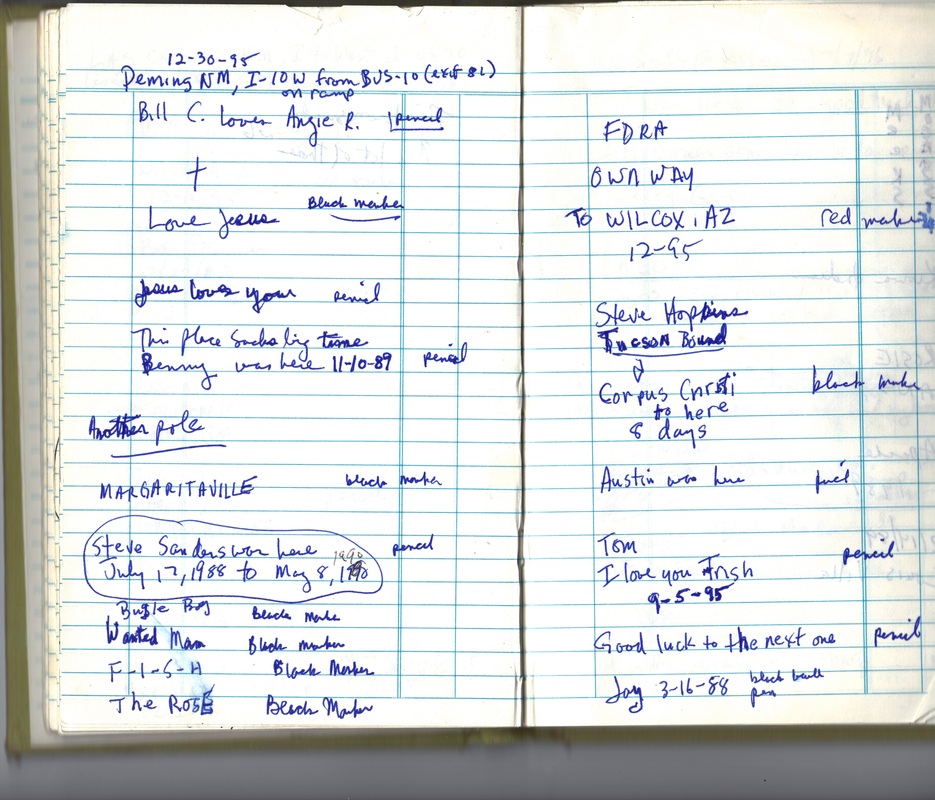 12-30-95
Deming NM, I-10W from BUS-10 (exit 81)
on ramp
Bill C. Loves Angie R. pencil
Love Jesus Black marker
Jesus loves your pencil
This place sucks big time
Benny was here 11-10-89 pencil
Another pole
MARGARITAVILLE black marker
Steve Sanders was here pencil
July 17, 1988 to May 8, 1990
1990
Bugle Boy Black Marker
Wanted Man Black marker
F-I-S-H Black Marker
The ROSE Black Marker
FDRA
OWN WAY
TO WILCOX, AZ red marker
12-95
Steve Hopkins
Tucson Bound
Corpus Cristi black marker
to here
8 days
Austin was here pencil
Tom
I love you Trish pencil
9-5-95
Good luck to the next one pencil
Jay 3-16-88 black ball
pen